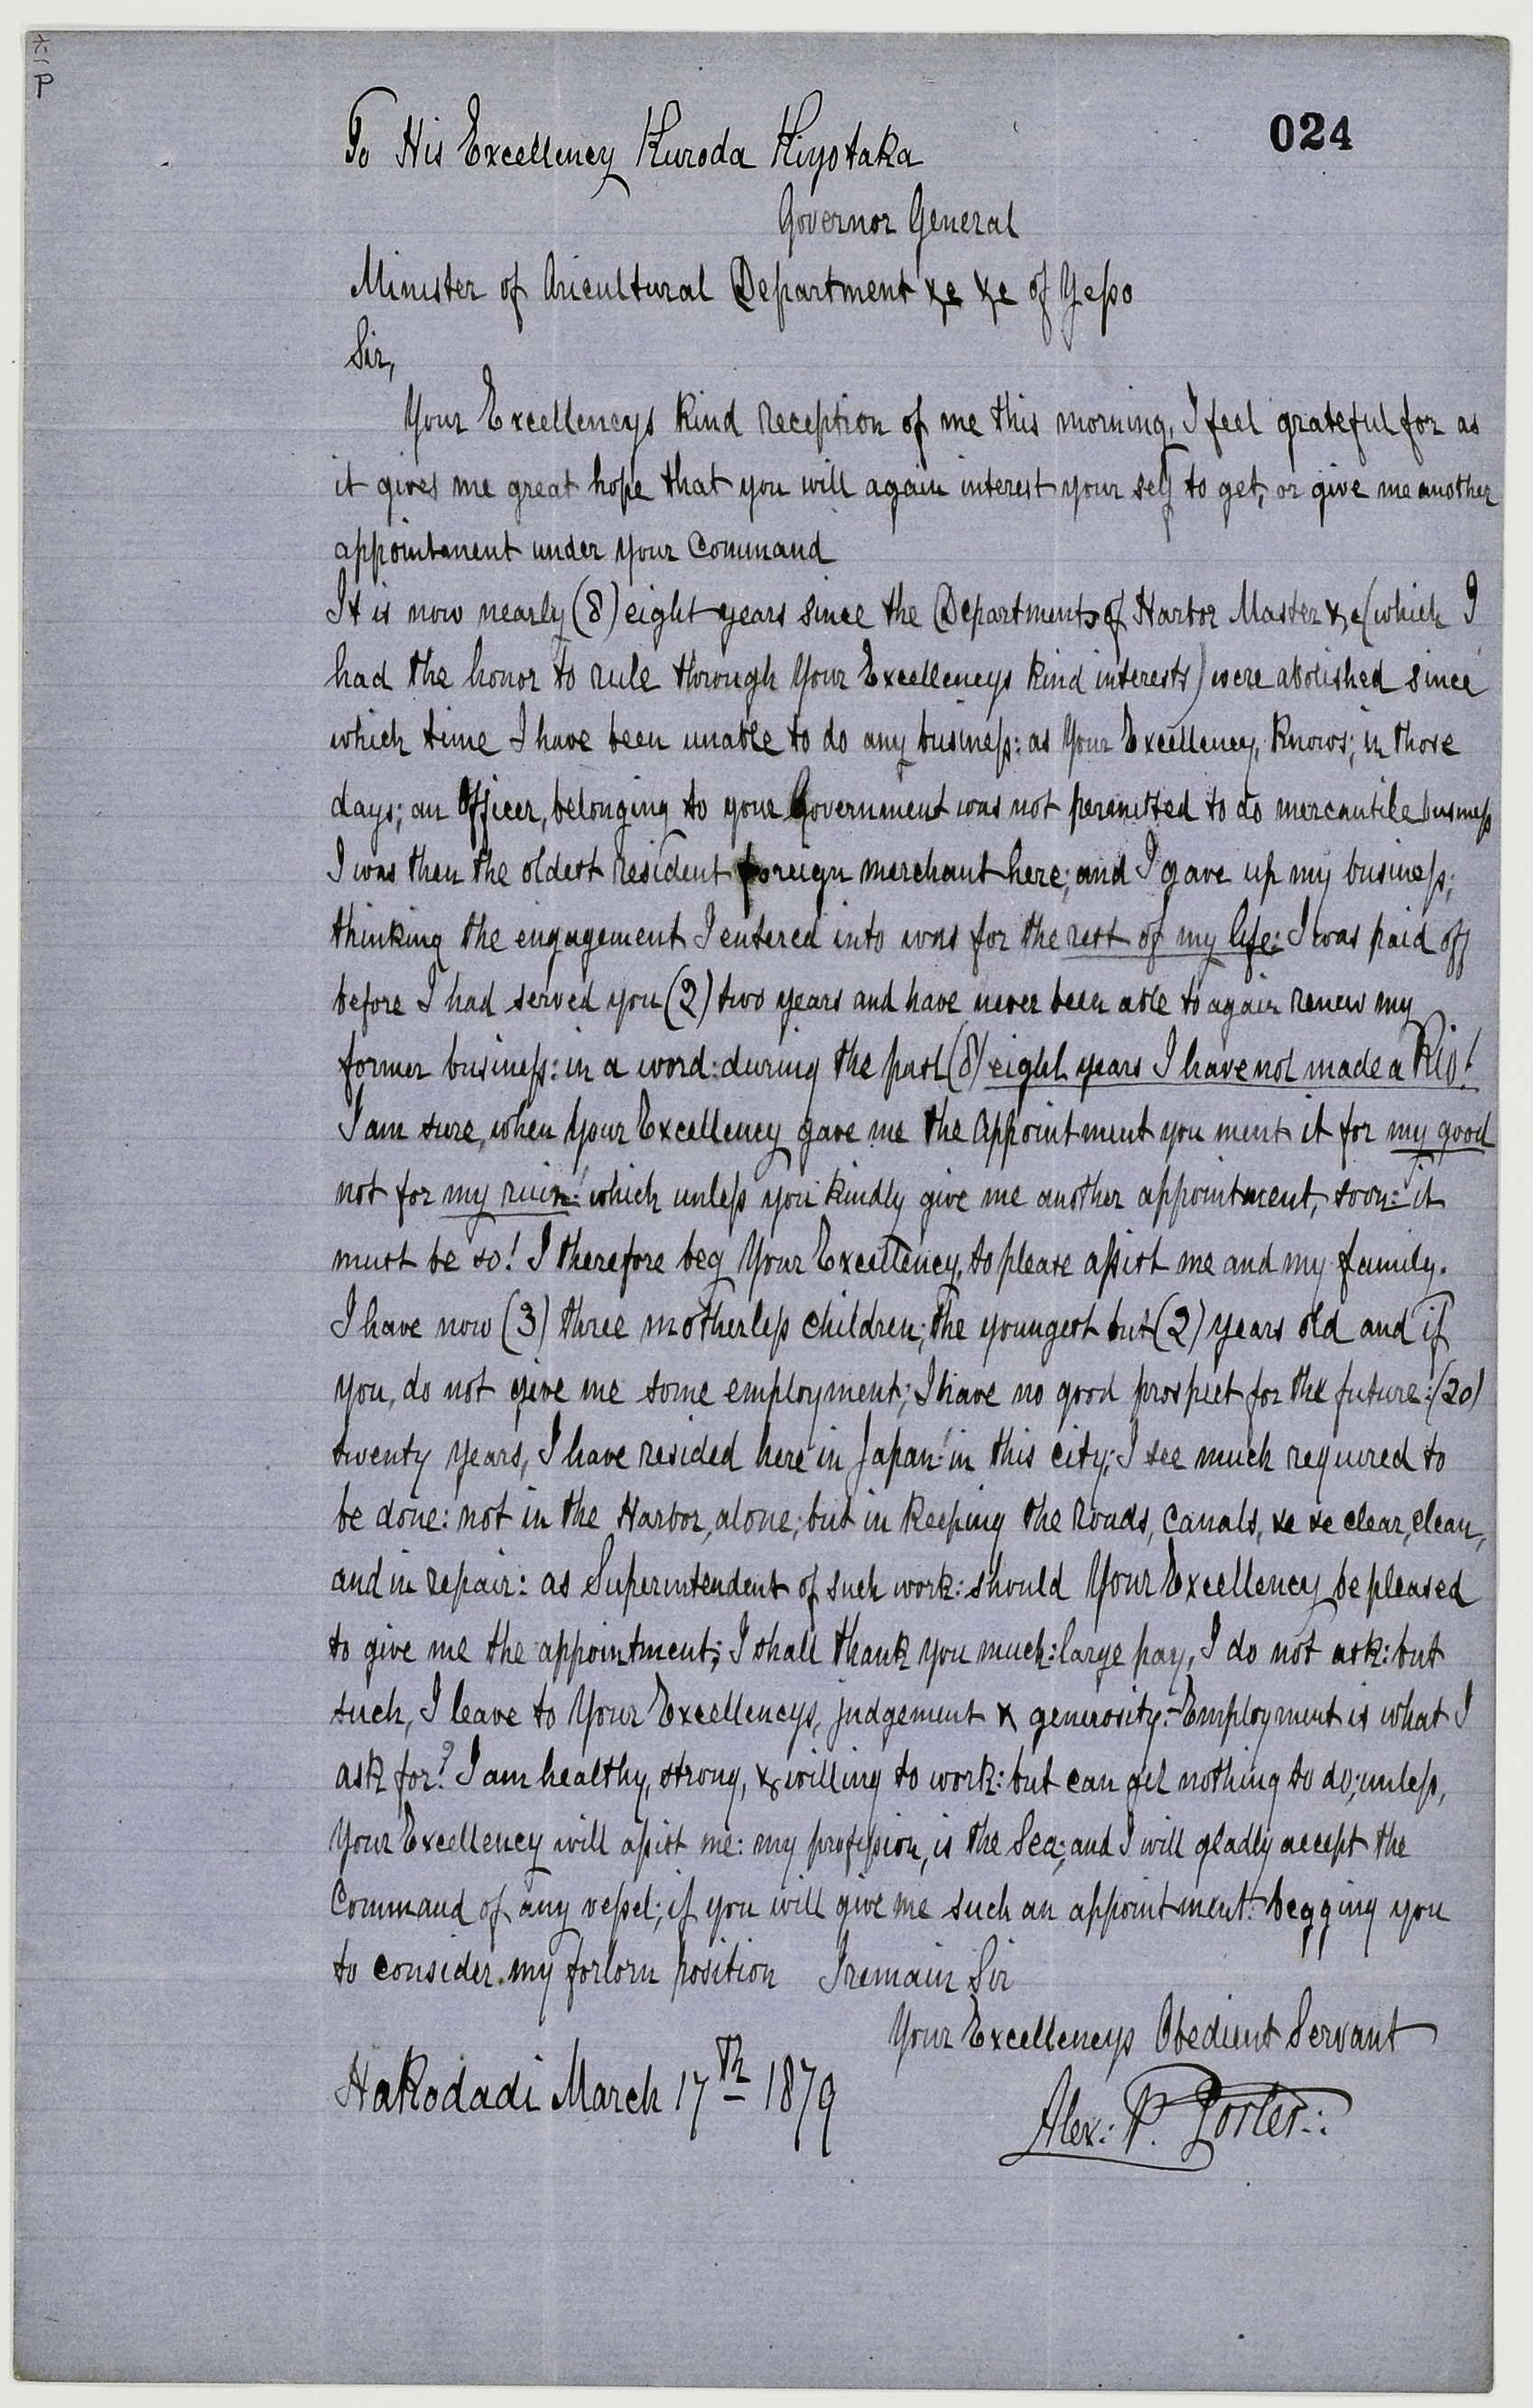 024
To His Excellency Kuroda Kiyotaka
Governor General
Minister of Aricultural Department &c &c of Yesso
Sir,
Your Excellencys kind reception of me this morning, I feel grateful for as
it gives me great hope that you will again interest your self to get, or give me another
appointment under your Command
It is now nearly (8) eight years since the Departments of Harbor Master &c (which I
had the honor to rule through Your Excellencys kind interests) were abolished since
which time I have been unable to do any business: as Your Excellency, knows; in those
days; an Officer, belonging to your Government was not permitted to do mercantile business
I was then the oldest resident foreign merchant here; and I gave up my business;
thinking the engagement I entered into was for the rest of my life: I was paid off
before I had served you (2) two years and have never been able to again renew my
former business: in a word: during the past (8) eight years I have not made a Rio!
I am sure, when Your Excellency gave me the Appointment you ment it for my good
not for my ruin: which unless you kindly give me another appointment, soon: it
must be so! I therefore beg Your Excellency, to please assist me and my family.
I have now (3) three motherless children; the youngest but (2) years old and if
you, do not give me some employment; I have no good prospect for the future: (20)
twenty years, I have resided here in Japan: in this city; I see much required to
be done: not in the Harbor, alone; but in keeping the Roads, Canals, &c &c clear, clean,
and in repair: as Superintendent of such work: should Your Excellency be pleased
to give me the appointment; I shall thank you much: large pay, I do not ask: but
such, I leave to Your Excellencys, judgement & generosity:- Employment is what I
ask for? I am healthy, strong, & willing to work: but can get nothing to do; unless,
Your Excellency will assist me: my profession, is the Sea; and I will gladly accept the
Command of any vessel; if you will give me such an appointment: begging you
to consider my forlorn position I remain Sir
Your Excellencys Obedient Servant
Hakodadi March 17th 1879
Alex: P. Porter:.